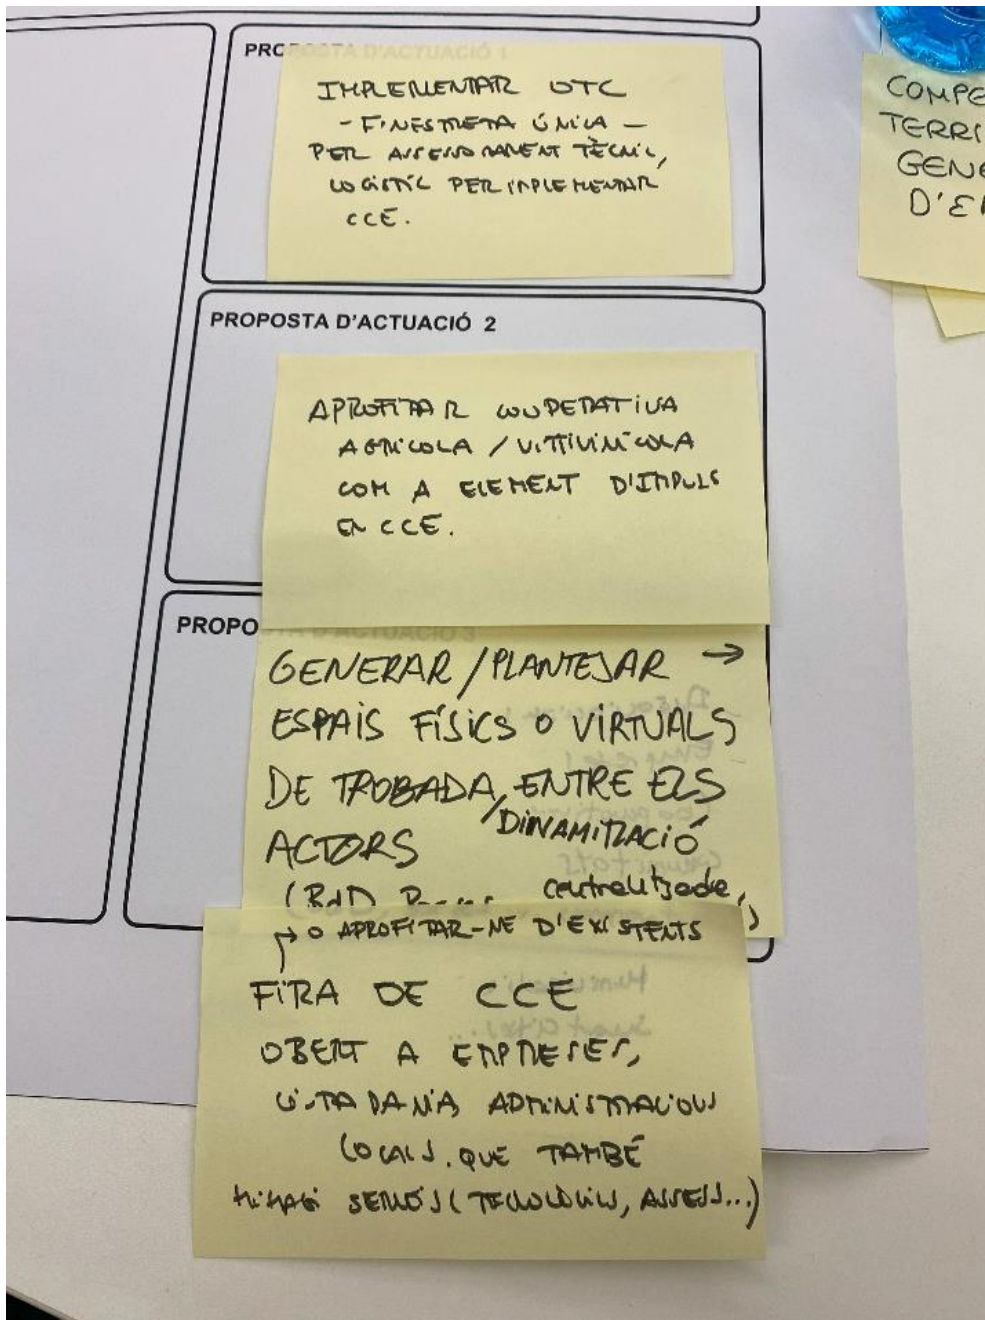 PROPOSTA D'ACTUACIÓ 1
IMPLEMENTAR OTC
- FINESTRETA ÚNICA -
PER ASSESSORAMENT TÈCNIC,
LOGÍSTIC PER IMPLEMENTAR
CCE.
COMPE
TERRI
GENE
D'E
PROPOSTA D'ACTUACIÓ 2
APROFITAR COOPERATIVA
AGRÍCOLA / VITIVINÍCOLA
COM A ELEMENT D'IMPULS
EN CCE.
PROPOSTA D'ACTUACIÓ 3
GENERAR / PLANTEJAR →
ESPAIS FÍSICS O VIRTUALS
DE TROBADA ENTRE ELS
/DINAMITZACIÓ
ACTORS
centralitzada,
→ O APROFITAR-NE D'EXISTENTS
FIRA DE CCE
OBERT A EMPRESES,
CIUTADANIA, ADMINISTRACIONS
LOCALS. QUE TAMBÉ
HI HAGI SERVEIS (TECNOLÒGICS, ASSESS...)